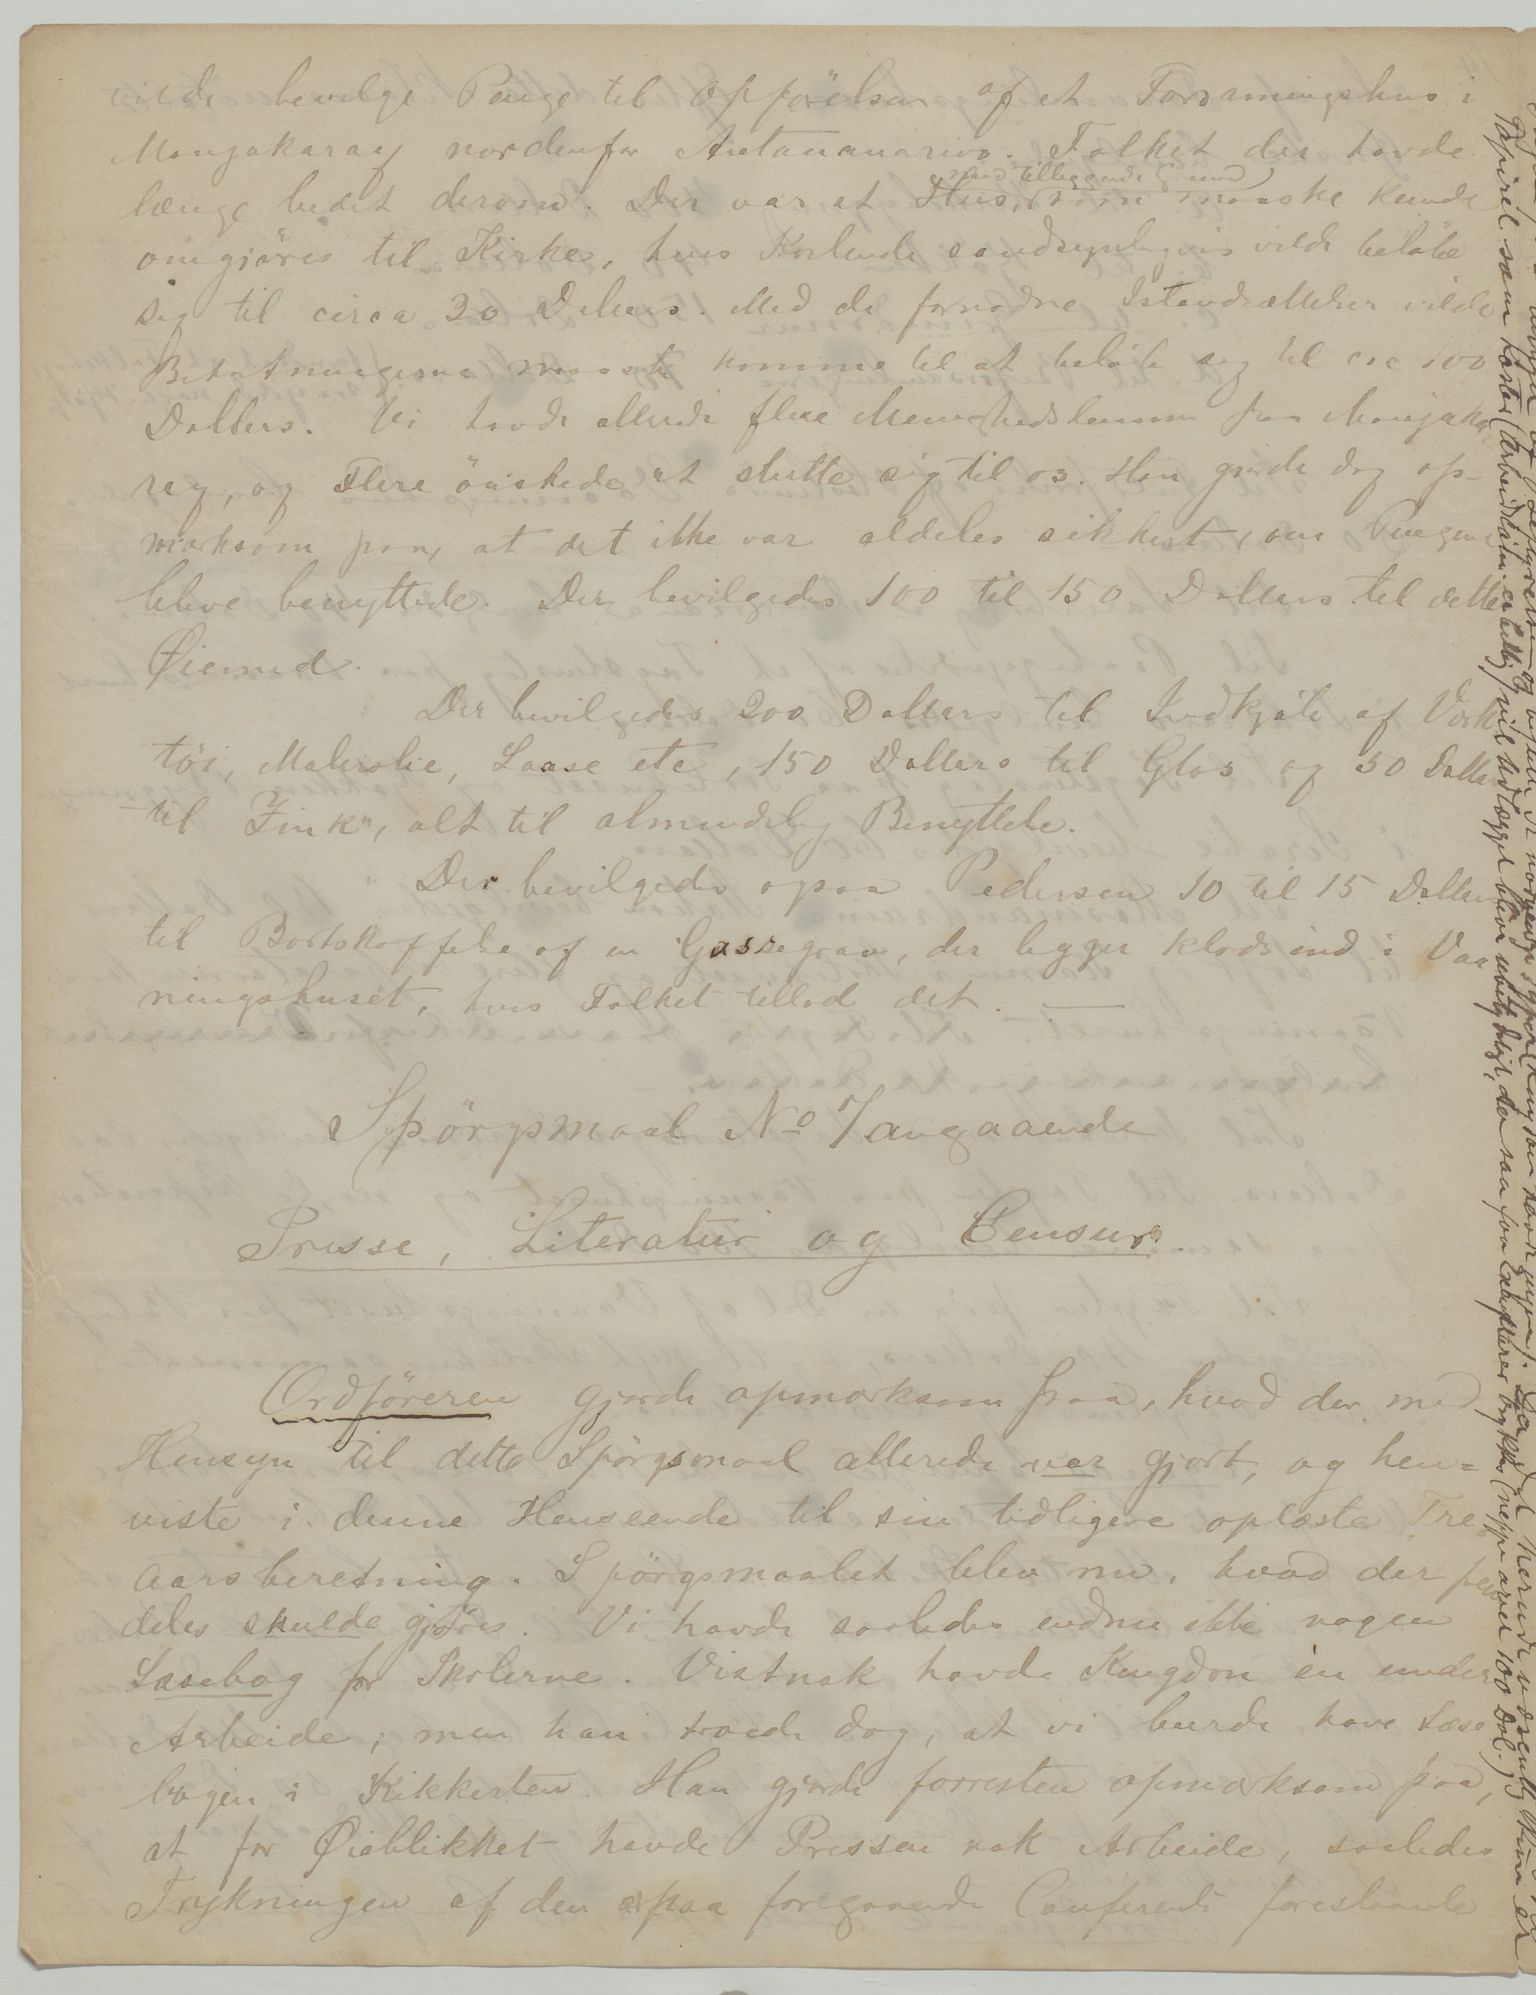 vilde bevilge Penge til Opförelsen af et Forsamingshus i
Manjakaray nordenfor Antananarivo. Folket der havde
med tilliggende Grund
længe bedet derom. Der var et Hus, som maaske kunde
omgjöres til Kirke, hvis Kostende sandsynligvis vilde belöbe
sig til circa 30 Dollars. Med de fornödne Istandsættelser vilde
Bekostningerne maaske komme til at belöbe sig til circ 100
Dollars. Vi havde allerede flere Menighedslemmer fra Manjaka-
ray, og Flere önskede at slutte sig til os. Han gjorde dog op-
mærksom paa, at det ikke var aldeles sikkert, om Pengene
bleve benyttede. Der bevilgedes 100 til 150 Dollars til dette
Øiemed.
Der bevilgedes 200 Dollars til Indkjöb af Værk
töi, Materialie, Laase etc, 150 Dollars til Glas og 50 Dollars
til Zink, alt til almindelig Benyttelse.
Der bevilgedes ogsaa Pedersen 10 til 15 Dollars
til Bortskaffelse af en Gassegrav, der ligger klods ind i Vaa
ningshuset, hvis Folket tillod det. —
Spörgsmaal No 7 angaaende
Presse, Literatur og Censur.
Ordföreren gjorde opmærksom paa, hvad der med
Hensyn til dette Spörgsmaal allerede var gjort, og hen=
viste i denne Henseende til sin tidligere oplæste Tre
aarsberetning. Spörgsmaalet blev nu, hvad der frem
deles skulde gjöres. Vi havde saaledes endnu ikke nogen
Læsebog for Skolerne. Vistnok havde Kingdon en under
Arbeide; men han troede dog, at vi burde have Læse
bogen i Kikkerten. Han gjorde forresten opmærksom paa,
at for Øieblikket havde Pressen nok Arbeide, saaledes
Trykningen af den paa foregaaende Conferents foreslaaede
Papiret som koster (Arbeidslön er billig) vil Udlægget blive ubetydeligt, da saa faa Exemplarer trykkes (neppe over 100 Dol.)